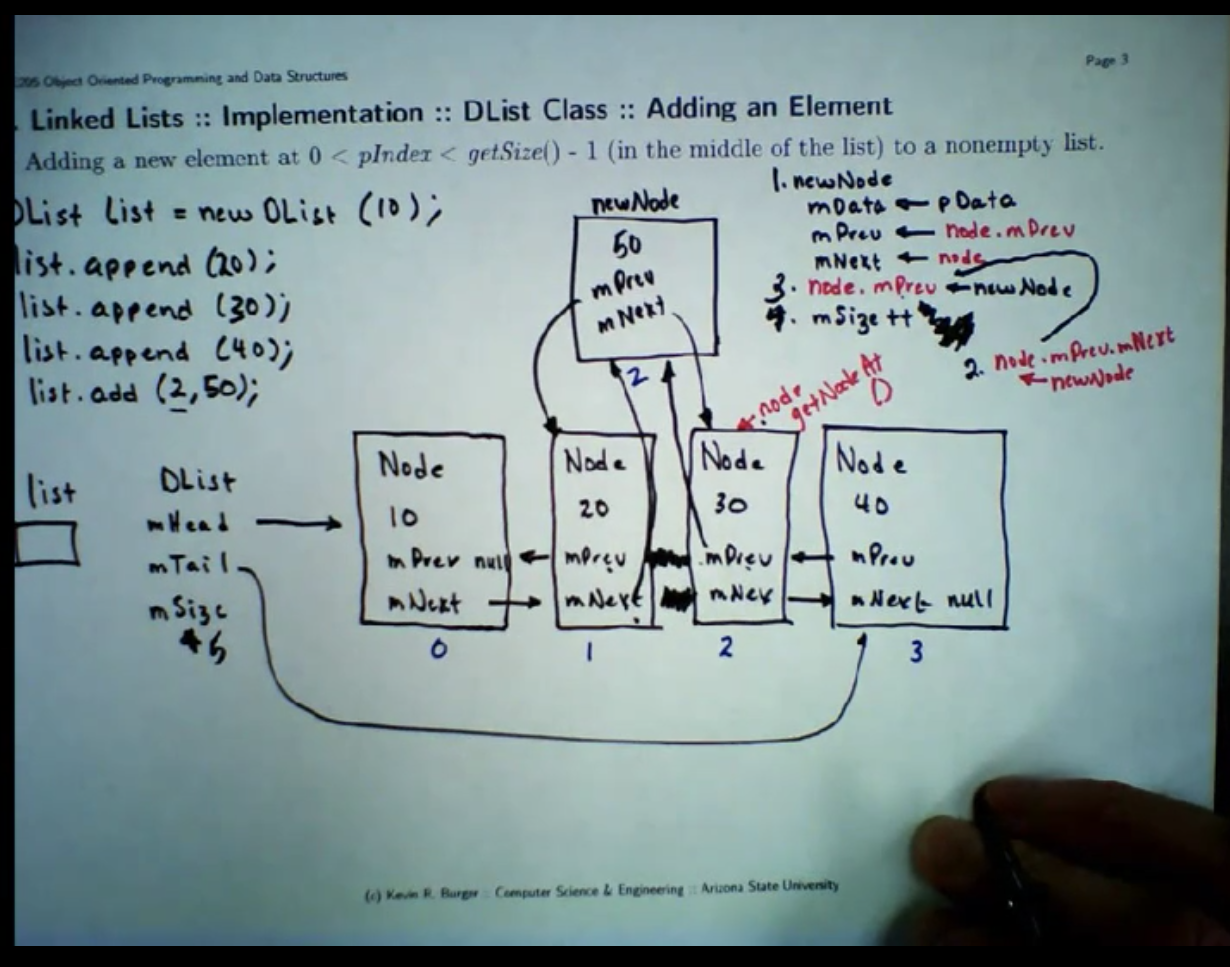 205 Object Oriented Programming and Data Structures
Page 3
. Linked Lists :: Implementation :: DList Class :: Adding an Element
Adding a new element at 0 < pIndex < getSize() - 1 (in the middle of the list) to a nonempty list.
DList list = new DList (10);
list.append (20);
list.append (30);
list.append (40);
list.add (2,50);
1. newNode
mData ← pData
mPrev ← node.mPrev
mNext ← node
3. node.mPrev ← newNode
4. mSize ++
2. node.mPrev.mNext
← newNode
newNode
50
mPrev
mNext
2
← node
getNodeAt
()
list
DList
mHead
mTail
mSize
5
Node
10
mPrev null
mNext
0
Node
20
mPrev
mNext
1
Node
30
mPrev
mNex
2
Node
40
mPrev
mNext null
3
(c) Kevin R. Burger :: Computer Science & Engineering :: Arizona State University